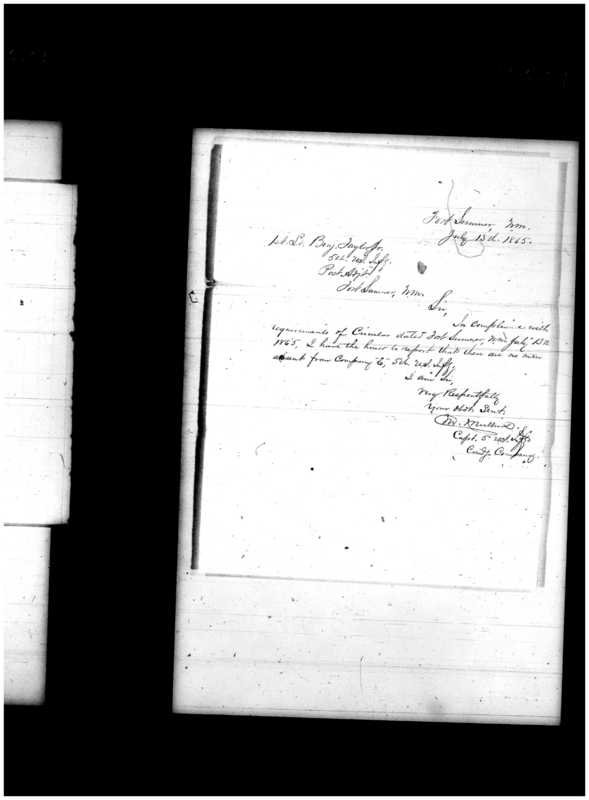 Fort Sumner, N.M.
July 13th 1865.
1st Lt. Benj. Taylor Jr.
5th U.S. Infy.
Post Adjt.
Fort Sumner, N.M.
Sir,
In compliance with
requirements of Circular dated Fort Sumner, N.M. July 13th
1865, I have the honor to report that there are no men
absent from Company "E," 5th U.S. Infy.
I am Sir,
Very Respectfully
Your Obdt. Servt.
Capt. 5th U.S. Infy
Comdg. Company.